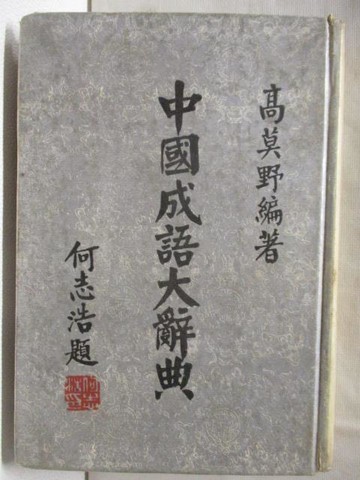 高莫野編著
中國成語大辭典
何志浩題